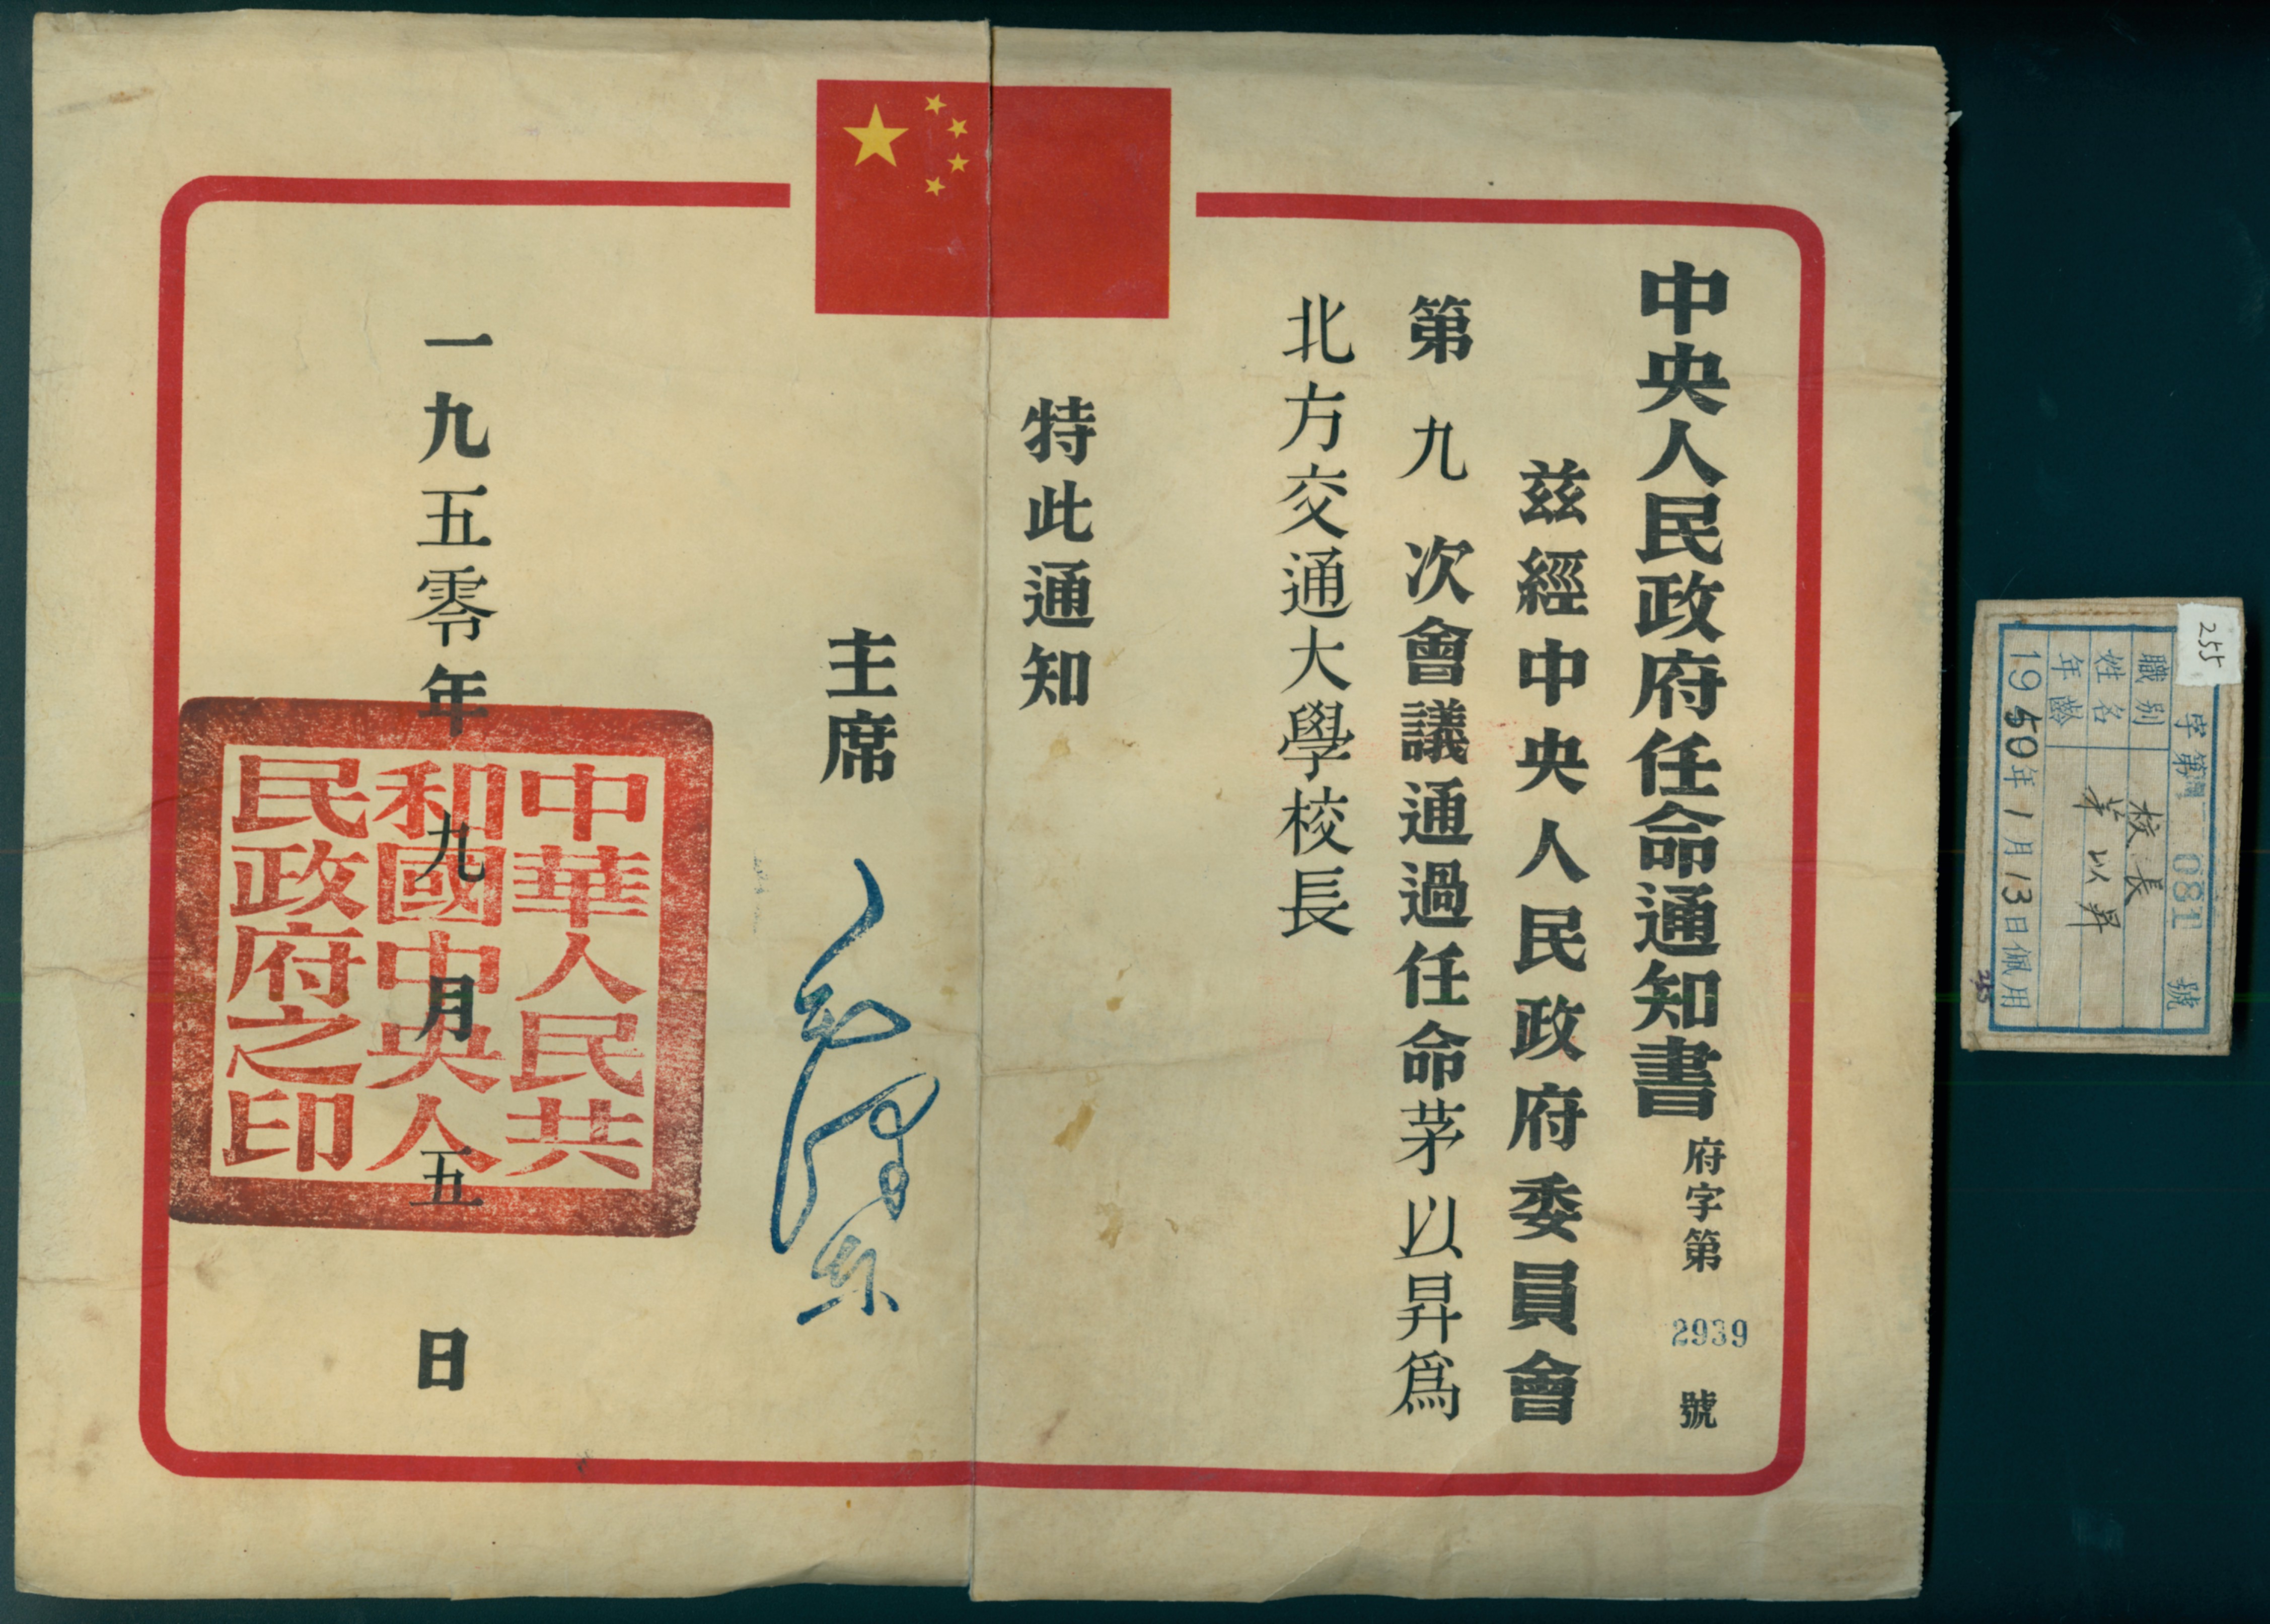 中央人民政府任命通知書
府字第 2939 號
茲經中央人民政府委員會
第九次會議通過任命茅以昇爲
北方交通大學校長
特此通知
主席 毛澤東
一九五零年九月五日
中華人民共
和國中央人
民政府之印
255
字第 081 號
職別 校長
姓名 茅以昇
年齡
1950年1月13日佩用
255